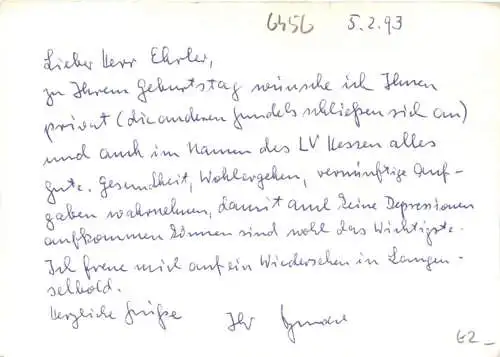 6456 5.2.93
Lieber Herr Ehrler,
zu Ihrem Geburtstag wünsche ich Ihnen
privat (die anderen Gundels schließen sich an)
und auch im Namen des LV Hessen alles
Gute. Gesundheit, Wohlergehen, vernünftige Auf-
gaben wahrnehmen, damit keine Depressionen
aufkommen können sind wohl das Wichtigste.
Ich freue mich auf ein Wiedersehen in Langen-
selbold.
Herzliche Grüße Ihr